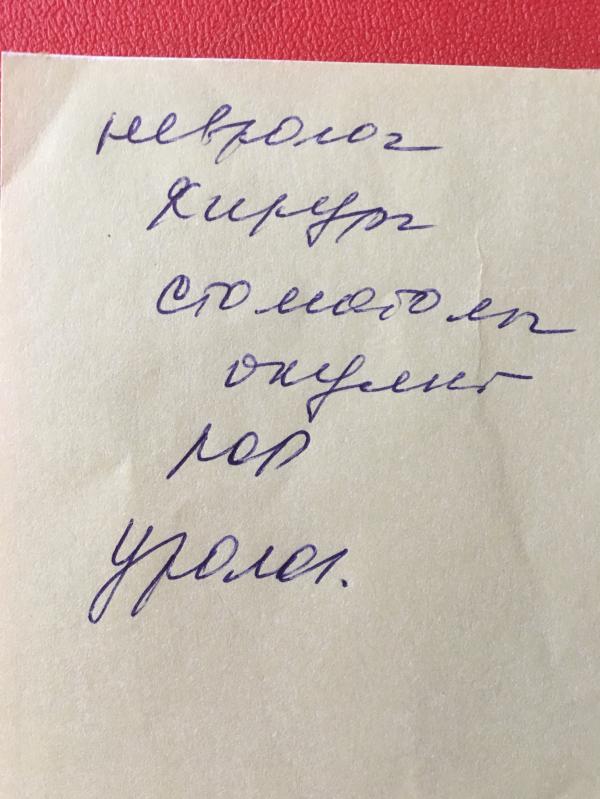 невролог
хирург
стоматолог
окулист
лор
уролог.